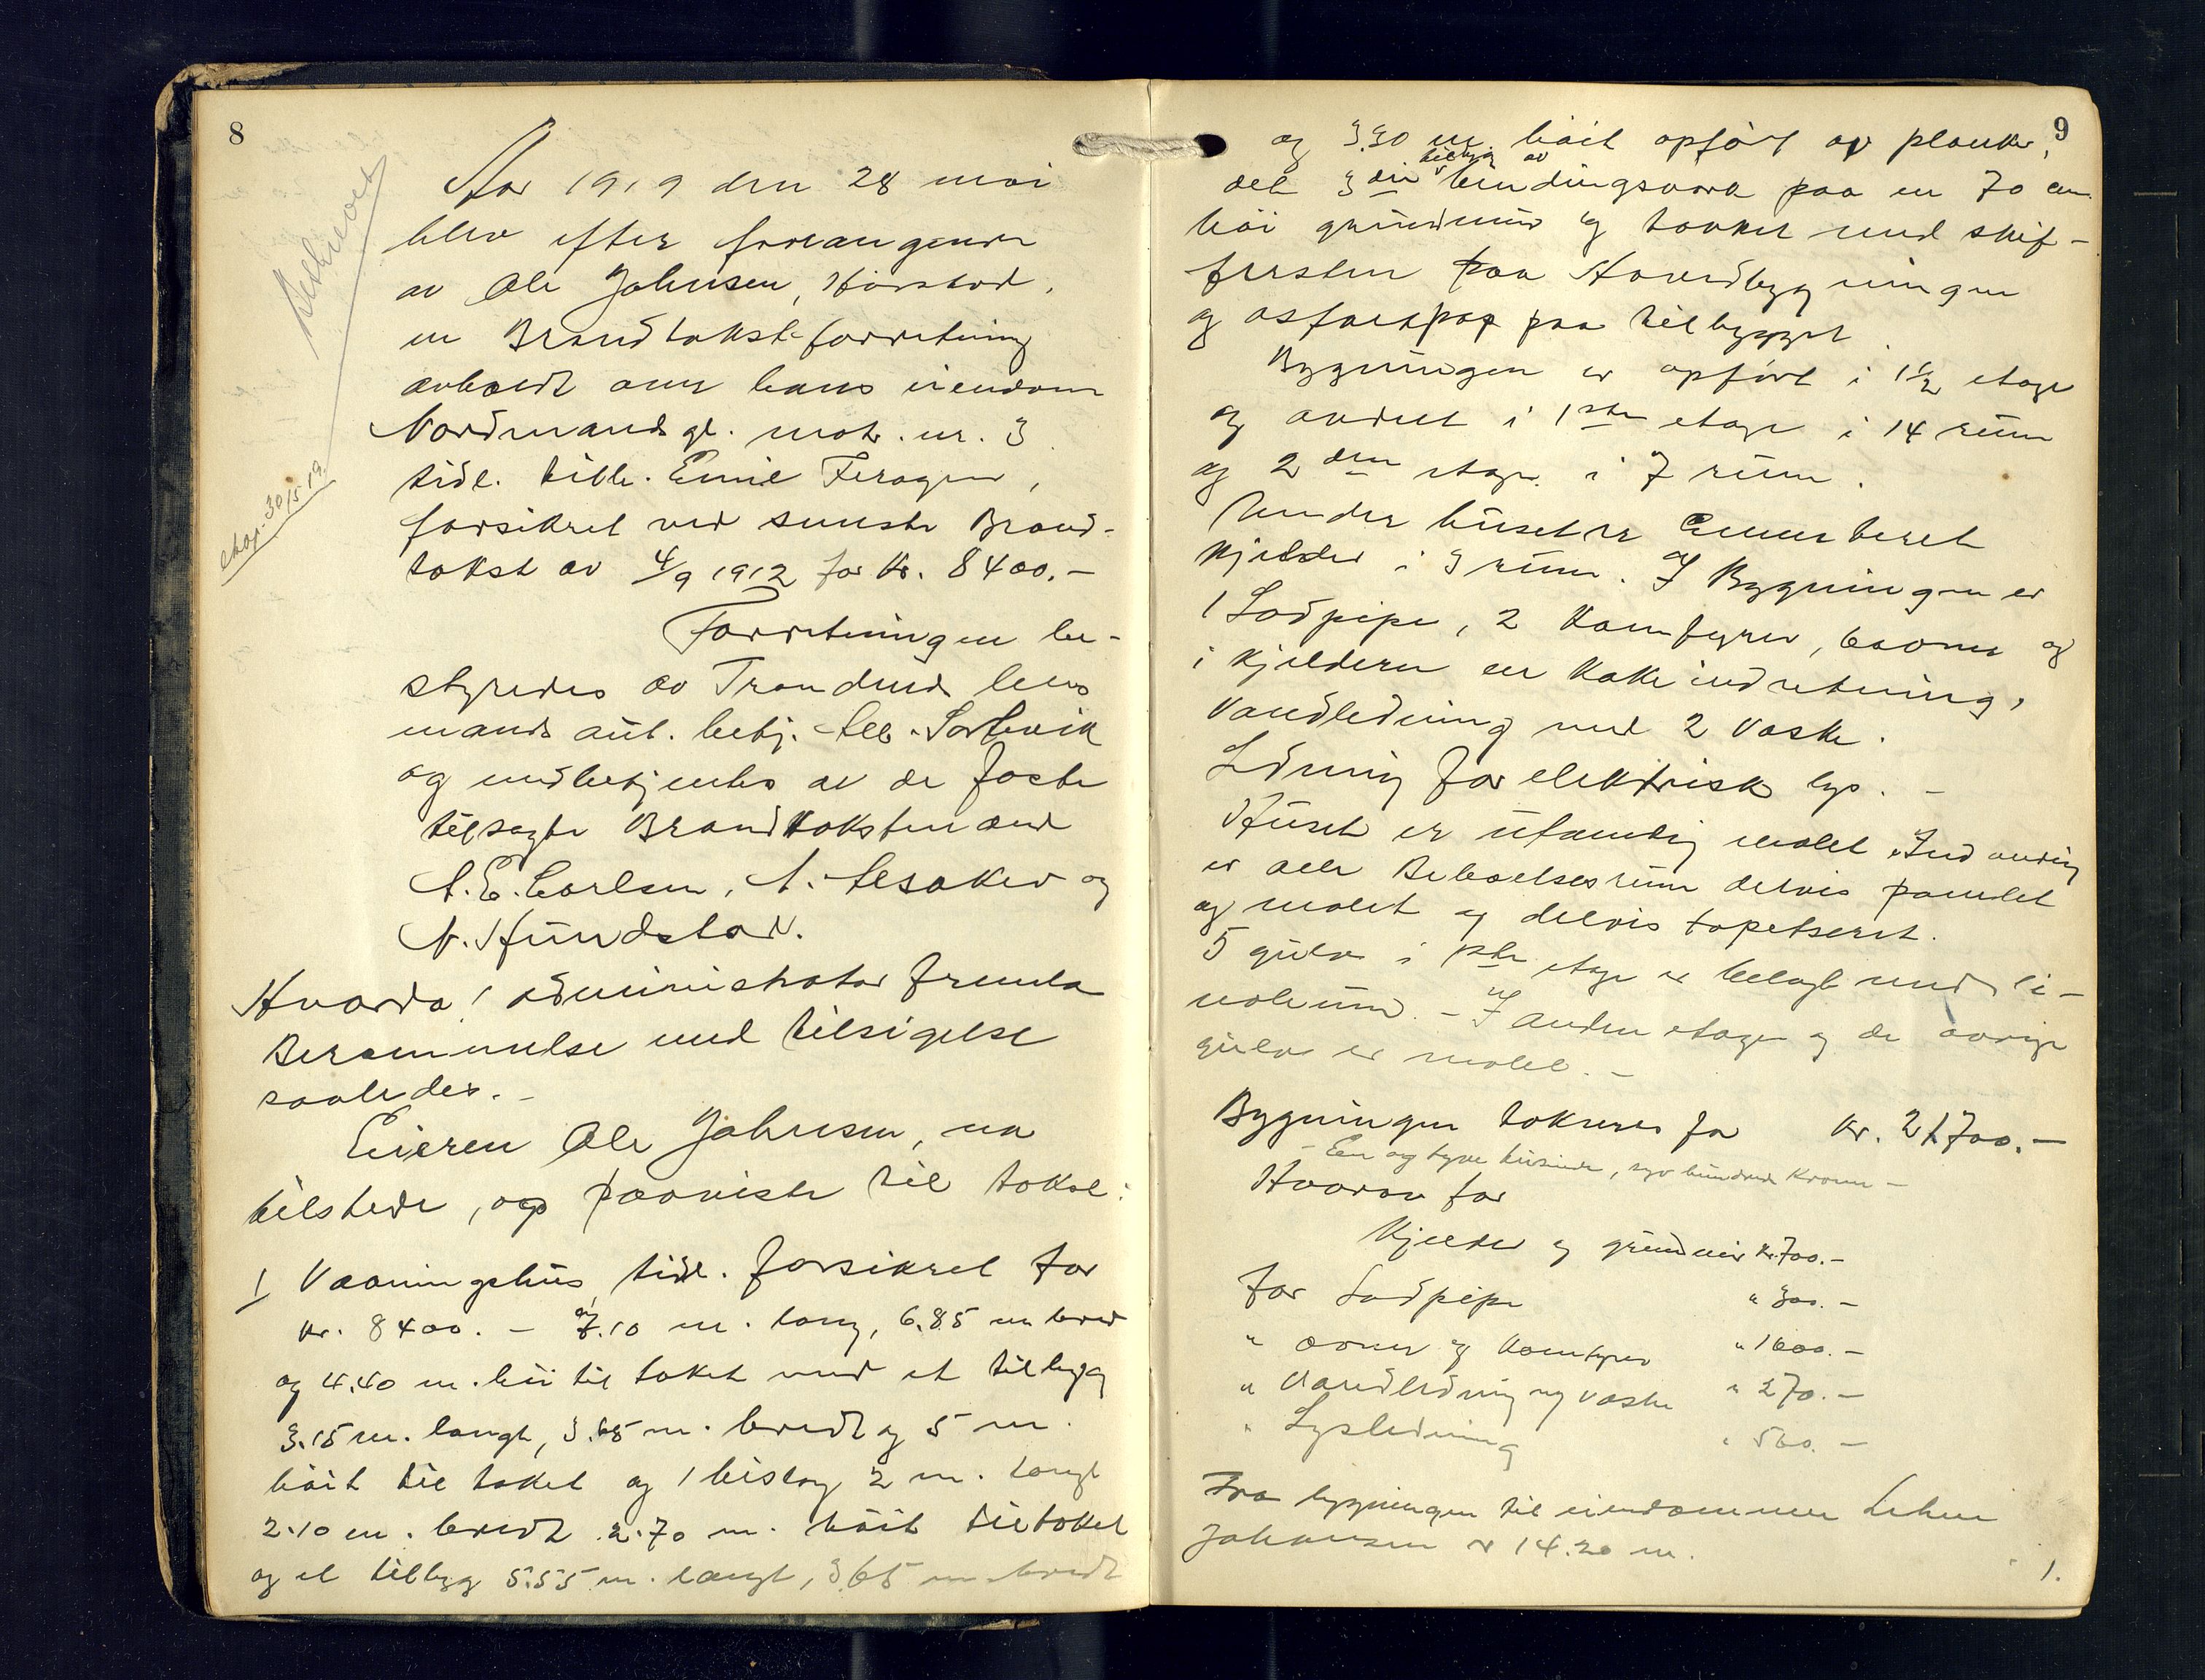 8
Beskrevet
eksp. 30/5 19.
Aar 1919 den 28 mai
blev efter forlangende
av Ole Johnsen, Harstad,
en Brandtakst-forretning
avholdt over hans eiendom
Nordmandsgt. matr. nr. 3
tidl. tilh. Emil Feragen,
forsikret ved seneste Brand-
takst av 4/9 1912 for Kr. 8400.-
Forretningen be-
styredes av Trondenes lens
mands aut. betj.
og medbetjentes av de faste
tilsagte Brandtakstmænd
A. E. Carlsen, A. Aesaker og
N. Hundstad.
Hvorda! administrator fremla
Berammelse med tilsigelse
saaledes.-
Eieren Ole Johnsen, var
tilstede, og paaviste til takst:
1 Vaaningshus, tidl. forsikret for
kr. 8400. - 7.10 m. lang, 6.85 m bred
og 4.40 m. høi til taket med et tilbygg
3.15 m. langt, 3.65 m. bredt og 5 m.
høit til taket og 1 bislag 2 m. langt
2.10 m. bredt 2.70 m. høit til taket
og et tilbygg 5.55 m. langt, 3.65 m bredt
9
og 3.30 m. høit opført av planker,
det 3die tilbygg av bindingsverk paa en 70 cm.
høi grundmur og tækket med skif-
fersten paa Hovedbygningen
og asfaltpap paa tilbygget.
Bygningen er opført i 1 1/2 etage
og avdelt i 1ste etage i 14 rum
og 2den etage i 7 rum.
Under huset er Cementeret
kjelder i 3 rum. I Bygningen er
1 Lodpipe, 2 Komfyrer, 6 ovner og
i kjelderen en Kokeindretning,
Vandledning med 2 Vaske.
Ledning for elektrisk lys. -
Huset er utvendig malet. Indvendig
er alle Beboelsesrum delvis panelet
og malet og delvis tapetseret.
5 gulve i 1ste etage er belagt med li-
noleum. - I anden etage og de øvrige
gulve er malet. -
Bygningen takseres for Kr. 21700.-
- En og tyve tusinde, syv hundrede Kroner -
Hvorav for
Kjelder og grundmur kr. 700.-
for Lodpipe " 300.-
" ovner og komfyrer " 1600.-
" Vandledning og vaske " 270.-
" Lysledning " 560.-
Fra bygningen til eiendommen
Johansen er 14.20 m.
1.